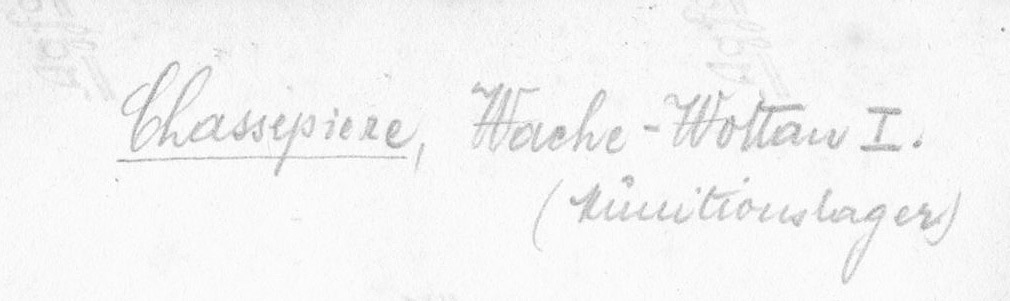 Chassepiere, Wache-Wottan I.
(Munitionslager)